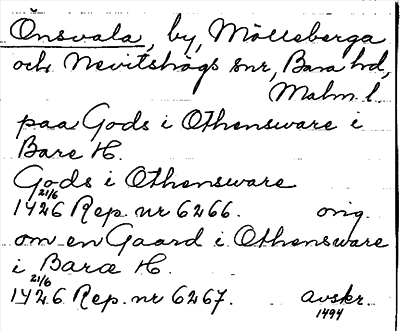 Önsvala, by, Mölleberga
och Nevitshögs snr, Bara hd,
Malm l.
paa Gods i Othensware i
Bare H.
Gods i Othensware
21/6
1426 Rep. nr 6266. orig.
om en Gaard i Othensware
i Baræ H.
21/6
1426 Rep. nr 6267. avskr.
1494